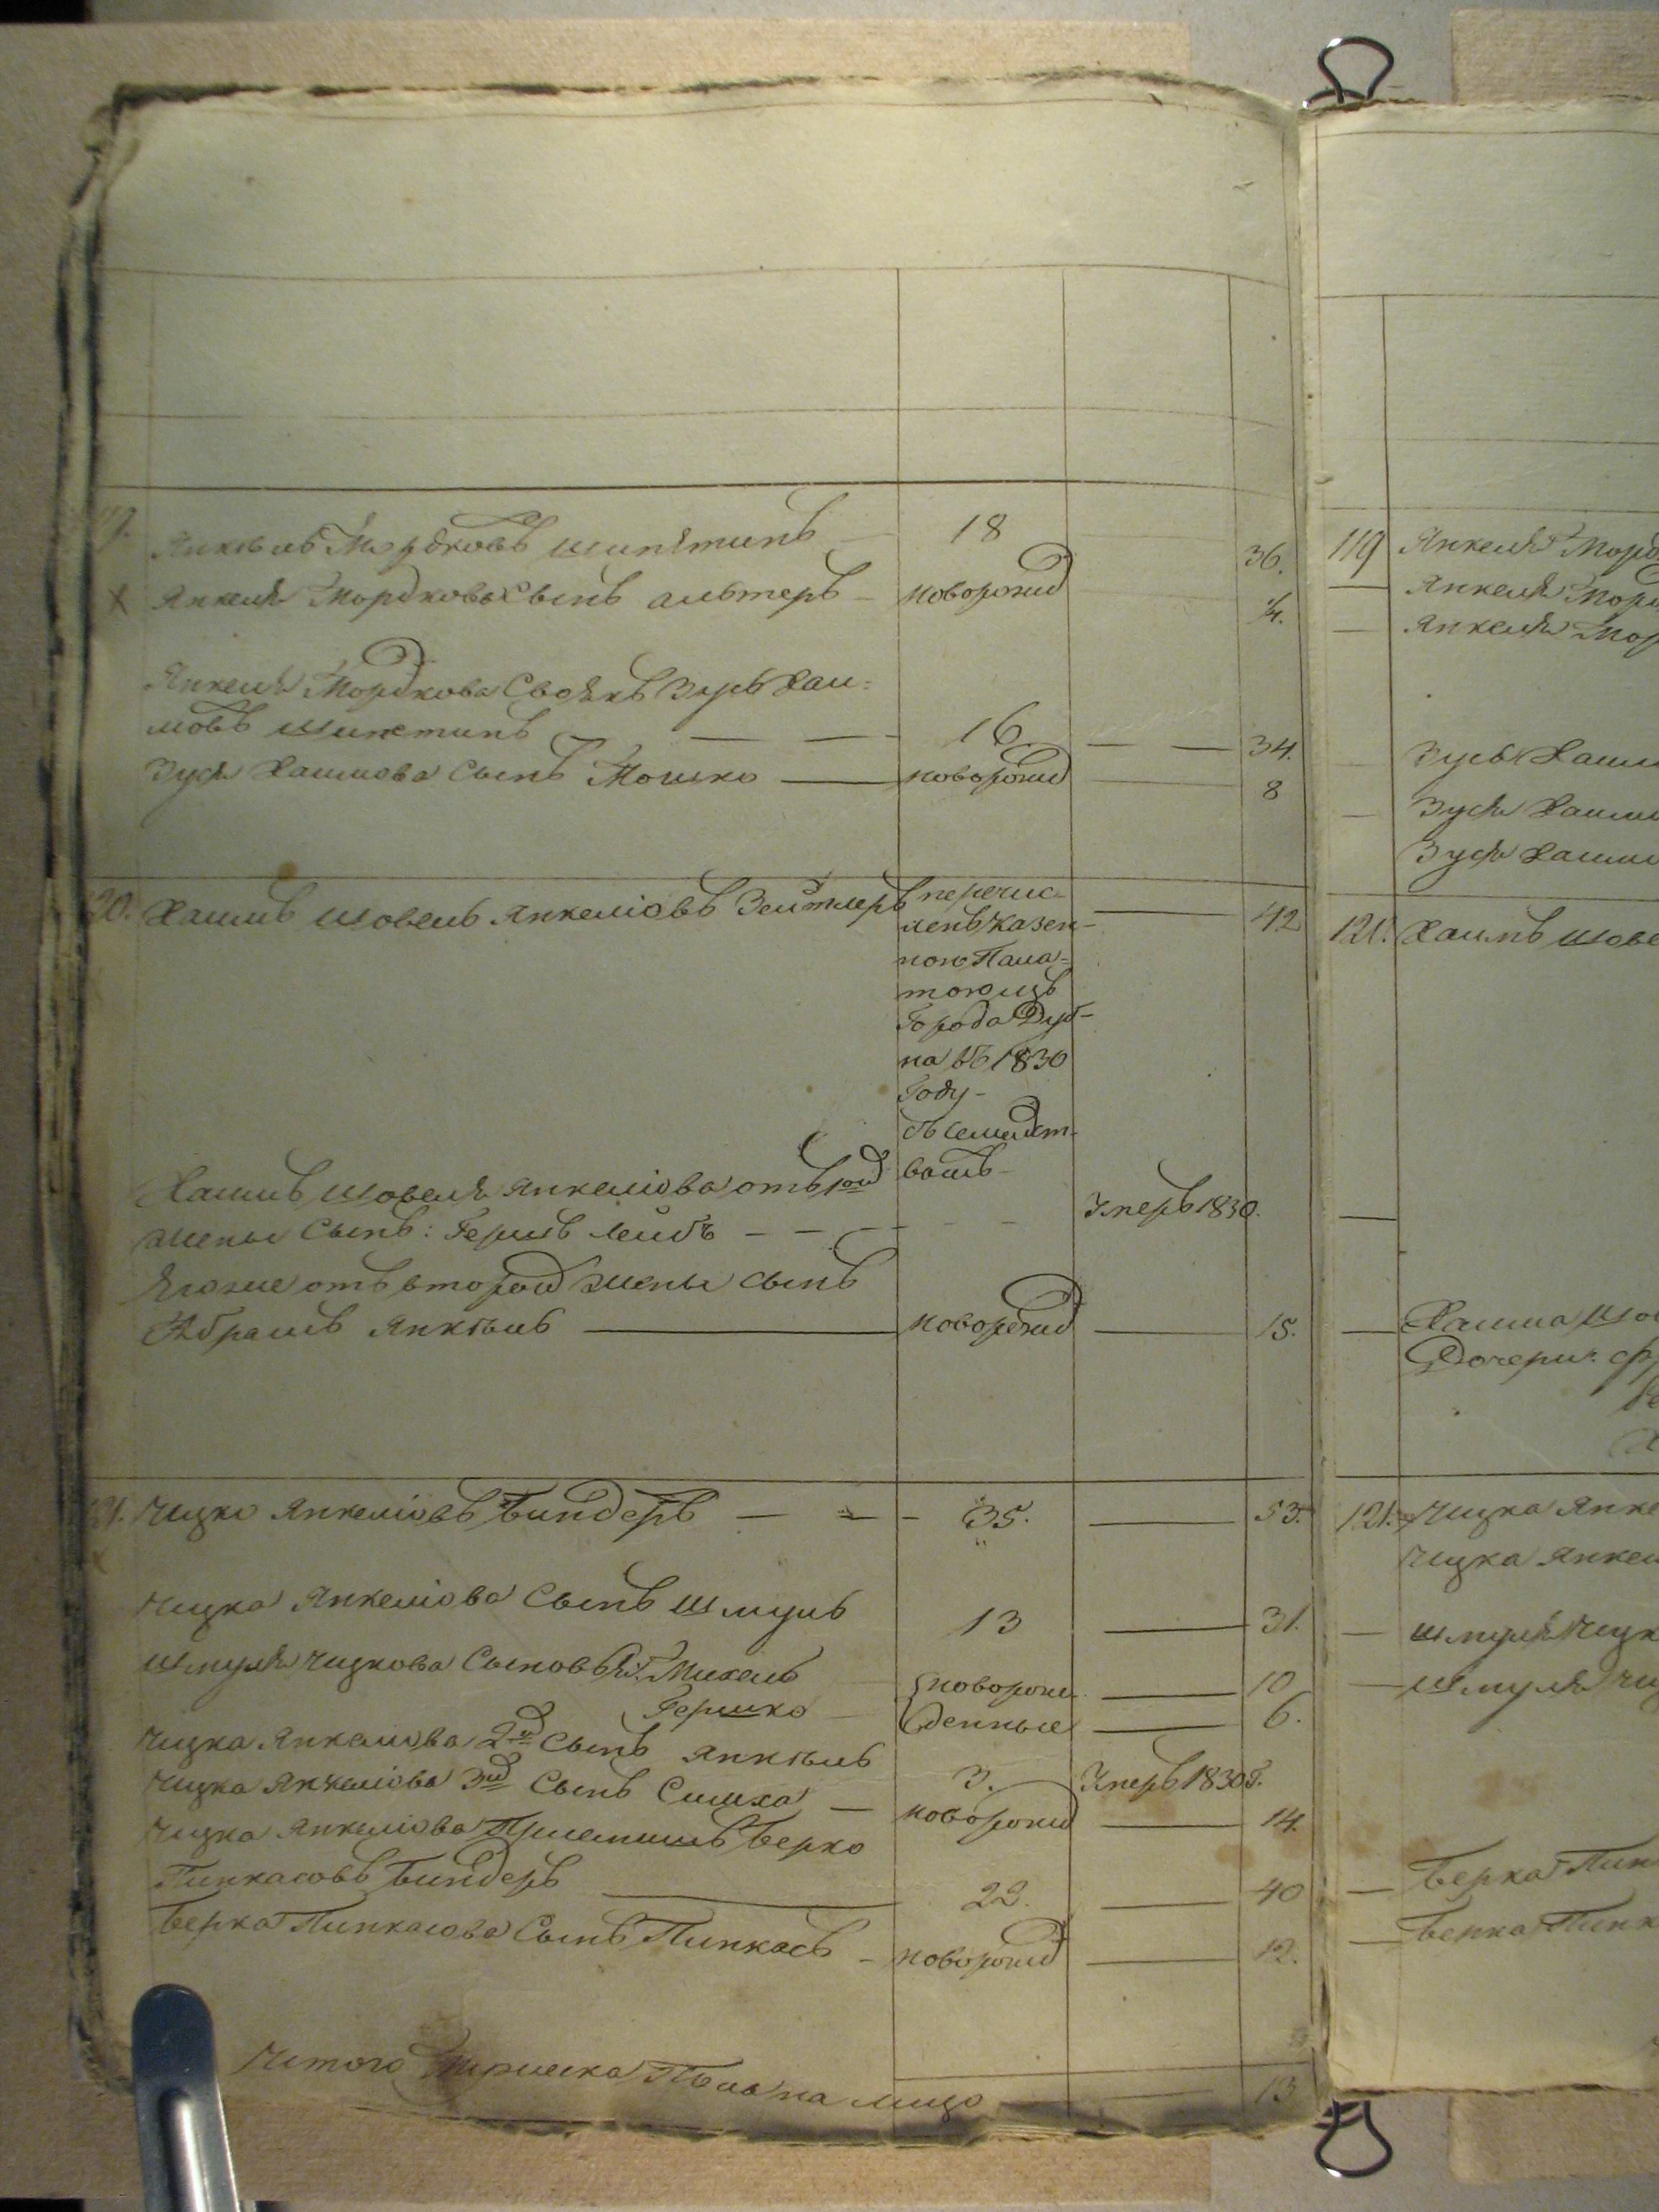 Янкель Мордковъ Шпятинъ — 18 36.
Янкеля Мордкова Сынъ Альтеръ — новорожд
Янкеля Мордкова Своякъ Зусь Хаи=
мовъ — — 16 — — 34.
Зуся Хаимова Сынъ Мошко — новорожд — 8
Хаимъ Шовель Янкеліовъ Зейтлеръ перечис- — 42
ленъ Казен-
ною Пала=
тою изъ
Города Дуб-
на въ 1830
Году-
съ семейст-
вомъ-
Хаимъ Шовеля Янкеліова отъ 1ой
жены Сынъ: Гершъ Лейбъ — — — Умеръ 1830.
Егоже отъ второй жены сынъ
Абрамъ Янкель — новорожд — 15.
Ицко Янкеліовъ Биндеръ — — - 35. — 53.
Ицка Янкеліова Сынъ Шмуль 13 — 31.
Шмуля Ицкова Сыновья: Михель {новорож — 10
Гершко — денные — 6.
Ицка Янкеліова 2й Сынъ Янкель 3. Умеръ 1830 г.
Ицка Янкеліова 3й Сынъ Симха — новорожд — 14.
Ицка Янкеліова Приемышъ Берко
Пинкасовъ Биндеръ — 22. — 40
Берка Пинкасова Сынъ Пинкасъ — новорожд — 12.
Итого мужеска Пола на лицо — 13
119 Янкеля Морд
— Янкеля Морд
— Янкеля Мор
Зусь Хаим
— Зуся Хаим
Зуся Хаим
Хаимъ Шове
— Хаима Шо
Дочери:
121. Ицка Янке
Ицка Янкел
— Шмуля Ицк
— Шмуля Иц
— Берка Пин
— Берка Пинк